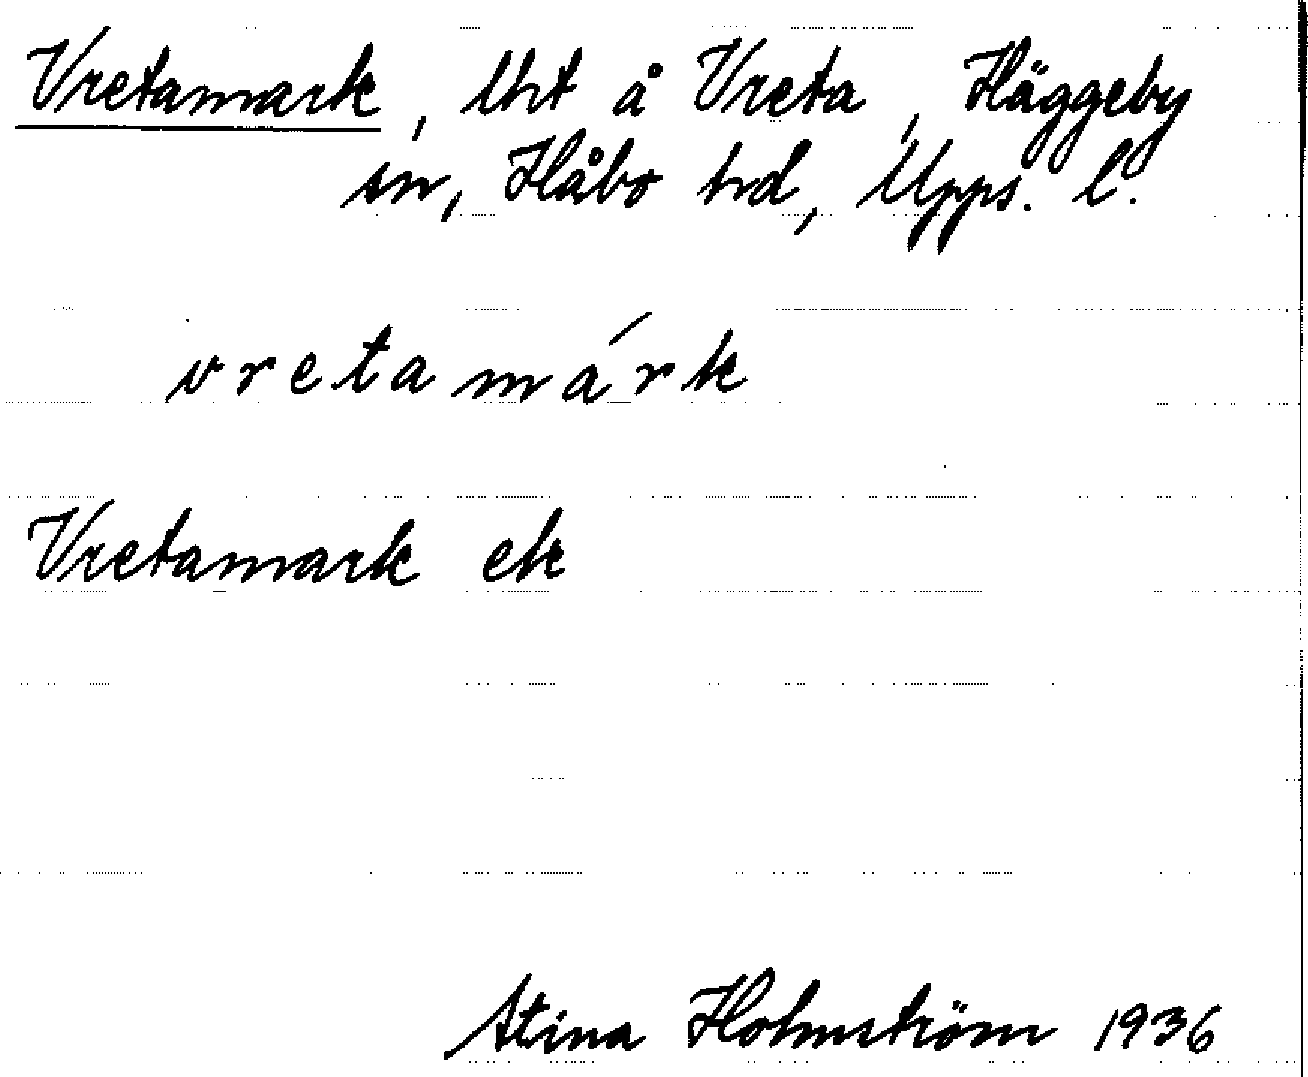 Vretamark, lht å Vreta, Häggeby
sn, Håbo hd, Upps. l.
vretamárk
Vretamark ek
Stina Holmström 1936